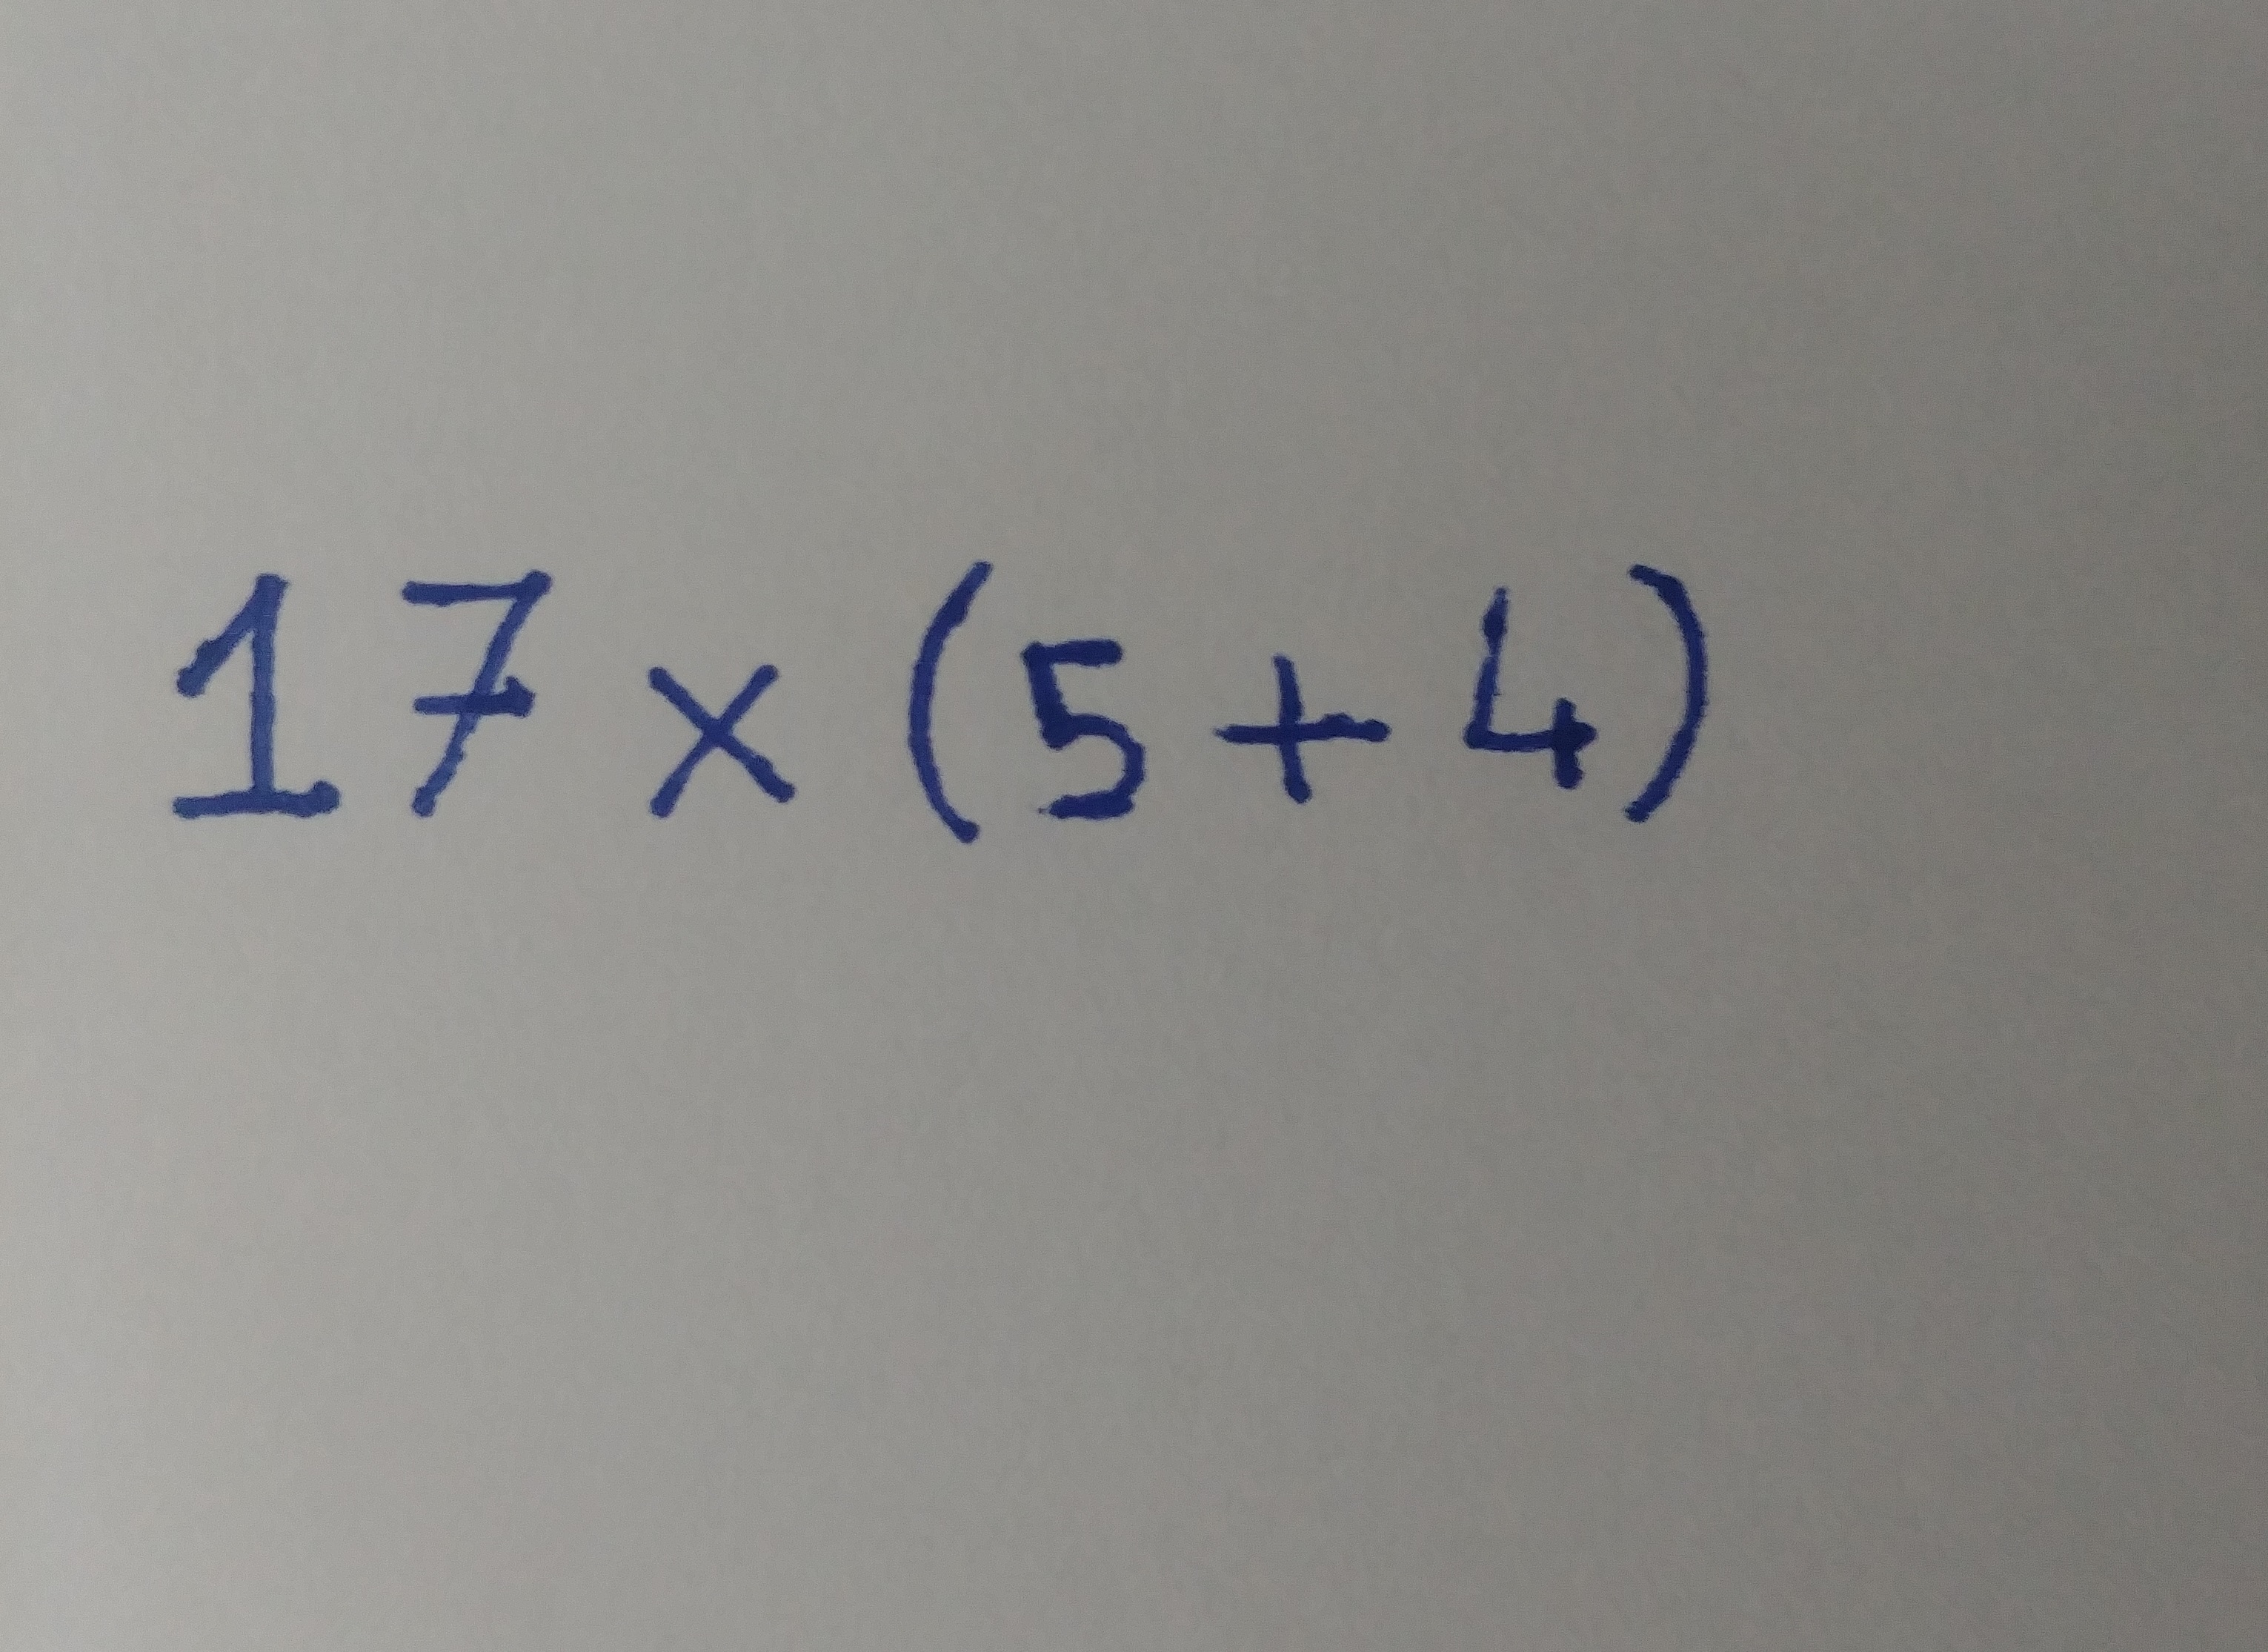 17 × (5 + 4)